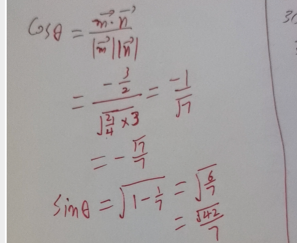 cosθ = \frac{\vec{m} \cdot \vec{n}}{|\vec{m}||\vec{n}|}
= \frac{-\frac{3}{2}}{\sqrt{\frac{21}{4}} \times 3} = \frac{-1}{\sqrt{7}}
= -\frac{\sqrt{7}}{7}
sinθ = \sqrt{1 - \frac{1}{7}} = \sqrt{\frac{6}{7}}
= \frac{\sqrt{42}}{7}